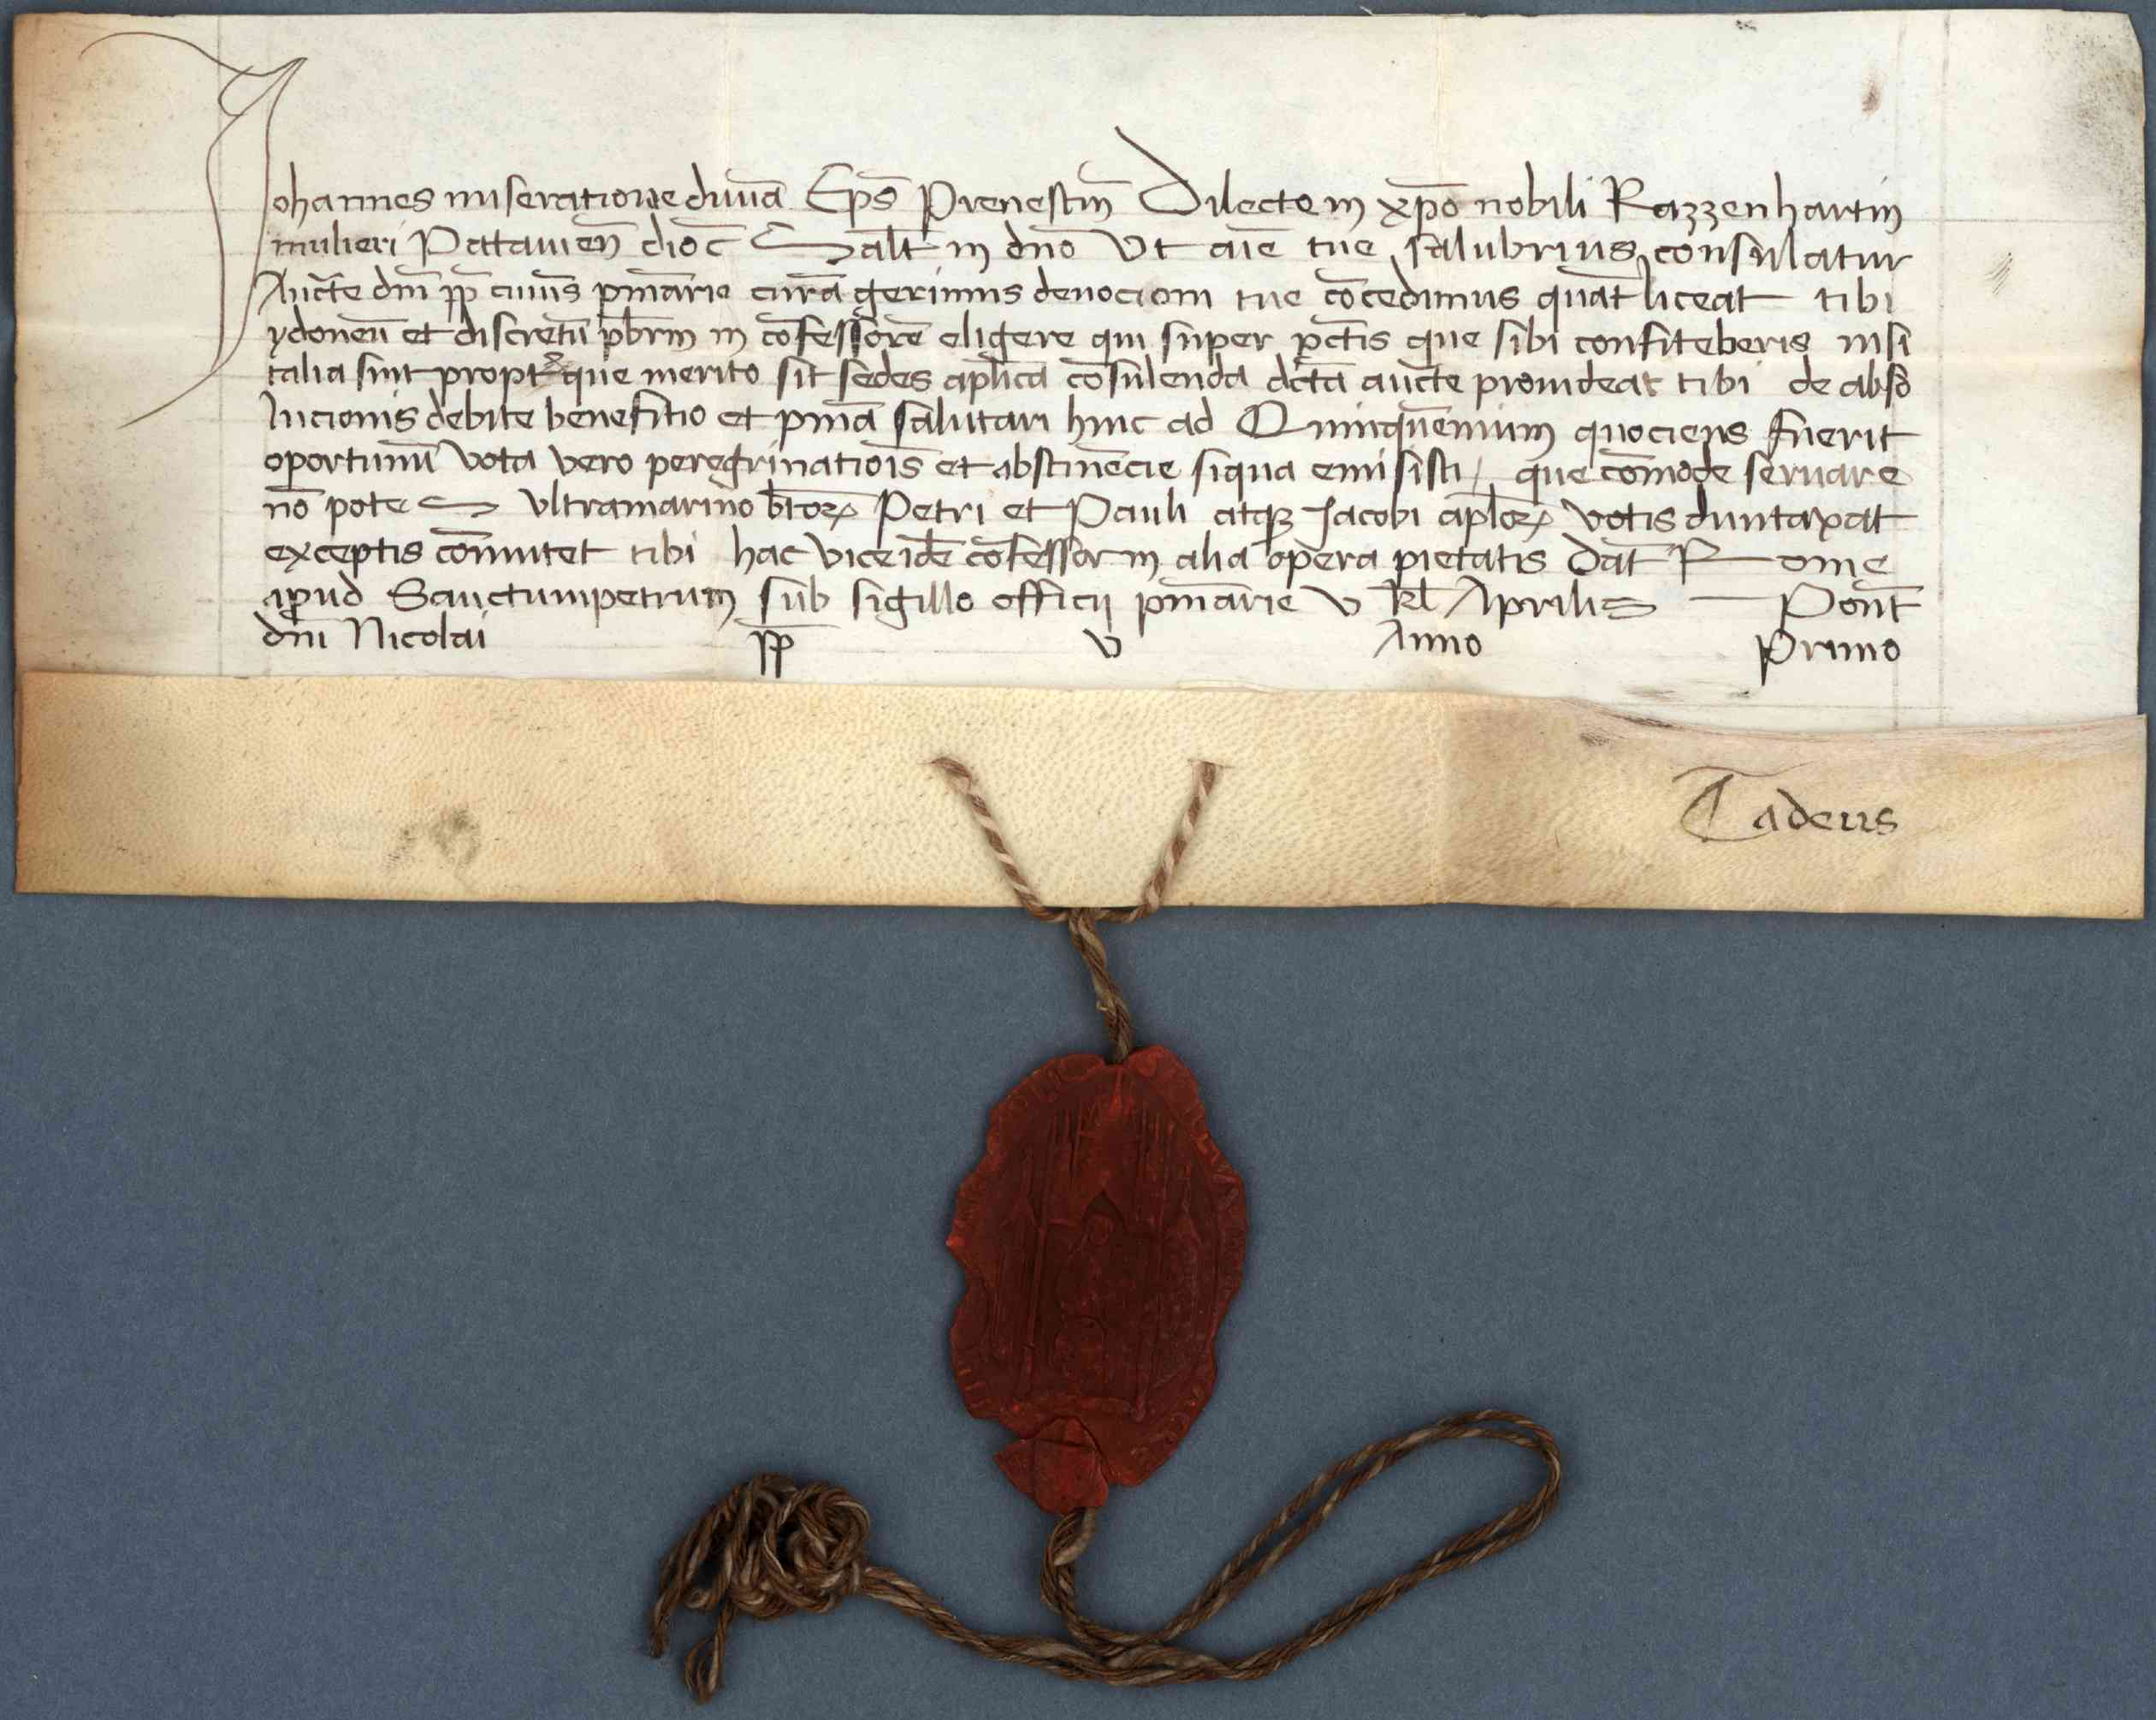 Johannes miseratione diuīa Ep̄s Prenestiñ Dilecte in xp̄o nobili Razzenhartin
mulieri Patauieñ dioc̄ Salt̄ in dn̄o Vt aīe tue salubrius consulatur
Auct̄e dn̄i pp̄ cuius pn̄iarie curā gerimus deuocioni tue cōcedimus quat̄ liceat tibi
ydoneū et discretū pb̄rm in cōfessorē eligere qui super pct̄is que sibi confiteberis nisi
talia sint propt̄ que merito sit sedes aplīca cōsulenda dc̄ta auct̄e prouideat tibi de abso
lucionis debite benefitio et pn̄ia salutari hinc ad Quinquēnium quociens fuerit
oportunū Vota vero peregrinatiōis et abstinēcie siqua emisisti, que cōmode seruare
nō potes Vltramarino bt̄oꝝ Petri et Pauli atqꝫ Jacobi apl̄oꝝ votis duntaxat
exceptis cōmutet tibi hac vice idē cōfessor in alia opera pietatis Dat̄ Rome
apud Sanctumpetrum sub sigillo officij pn̄iarie v kl̄ Aprilis Pont̄
dn̄i Nicolai pp̄ v Anno Primo
Tadeus